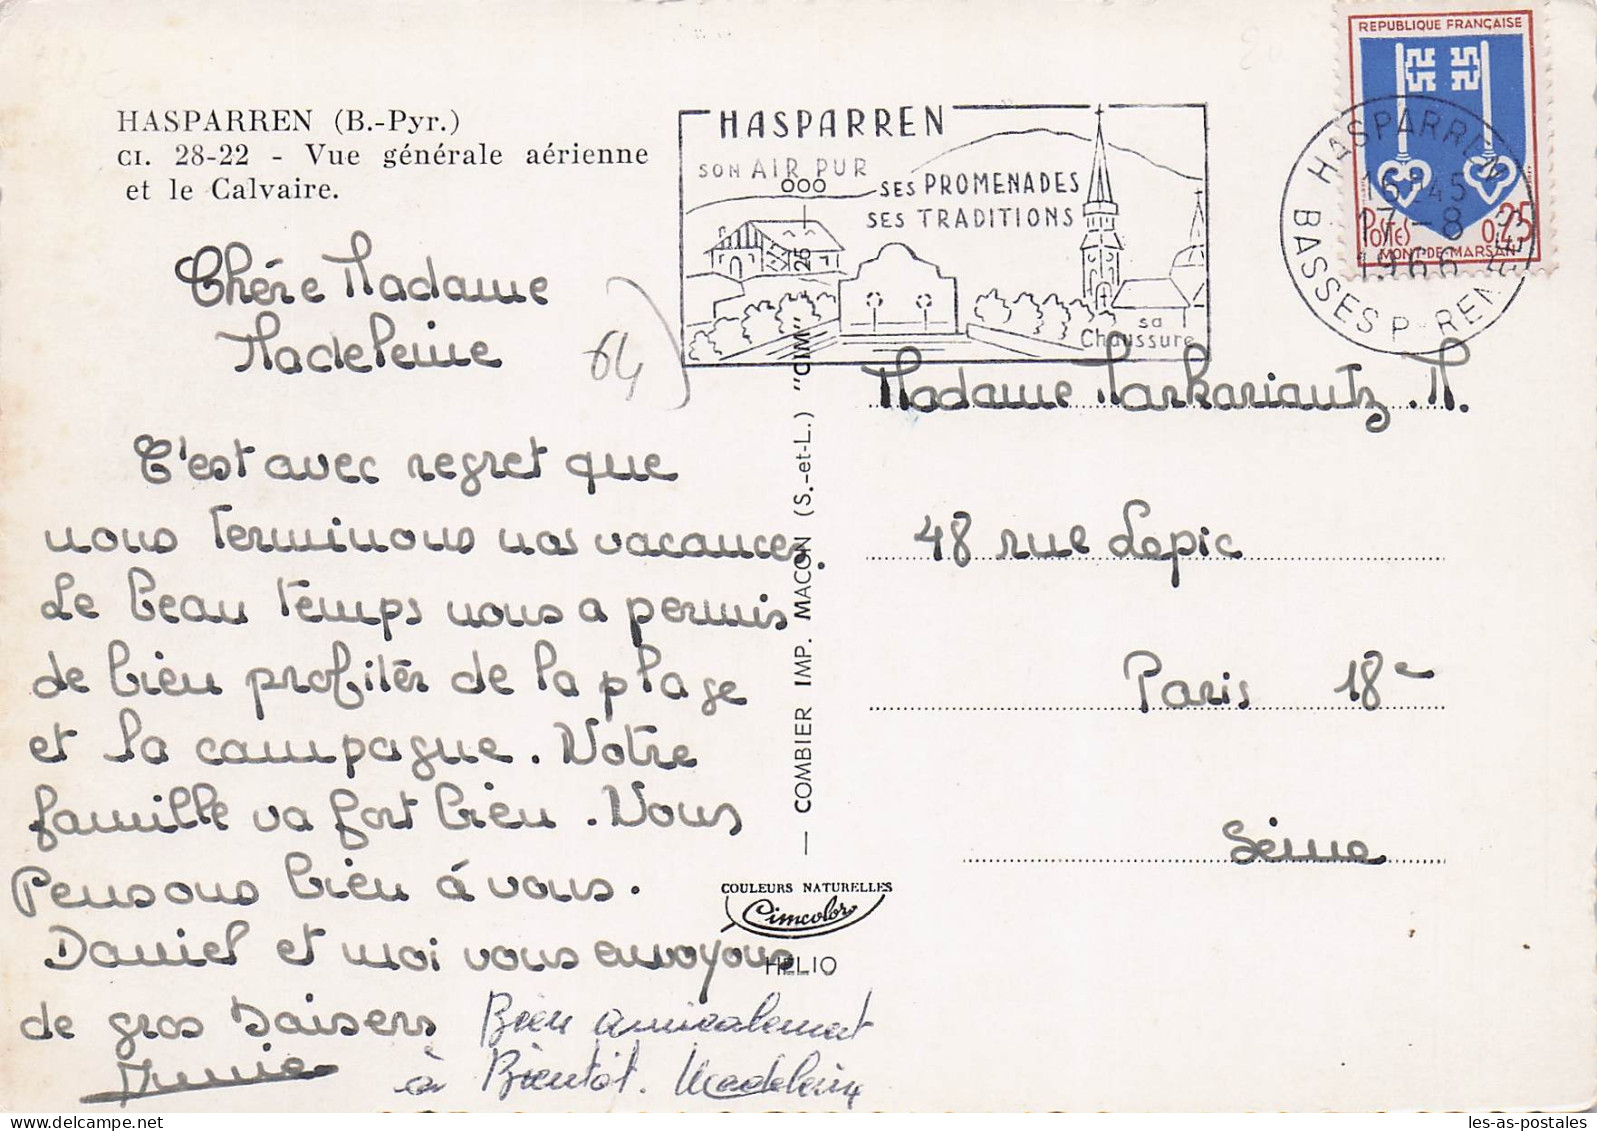 HASPARREN (B.-Pyr.)
CI. 28-22 - Vue générale aérienne
et le Calvaire.
HASPARREN
SON AIR PUR
SES PROMENADES
SES TRADITIONS
sa
Chaussure
REPUBLIQUE FRANÇAISE
POSTES 0,25
MONT-DE-MARSAN
HASPARREN
16H45
17-8
1966
BASSES PYRENEES
Chére Madame
Madeleine
64
C'est avec regret que
nous terminons nos vacances.
Le beau temps nous a permis
de bien profiter de la plage
et la campagne. Votre
famille va fort bien. Nous
Pensons bien á vous.
Daniel et moi vous envoyons
de gros baisers
Bien amicalement
à Bientôt. Madeleine
COMBIER IMP. MACON (S.-et-L.) "CIM"
COULEURS NATURELLES
Cimcolor
HELIO
Madame Markariantz .M.
48 rue Lepic
Paris 18e
Seine
les-as-postales